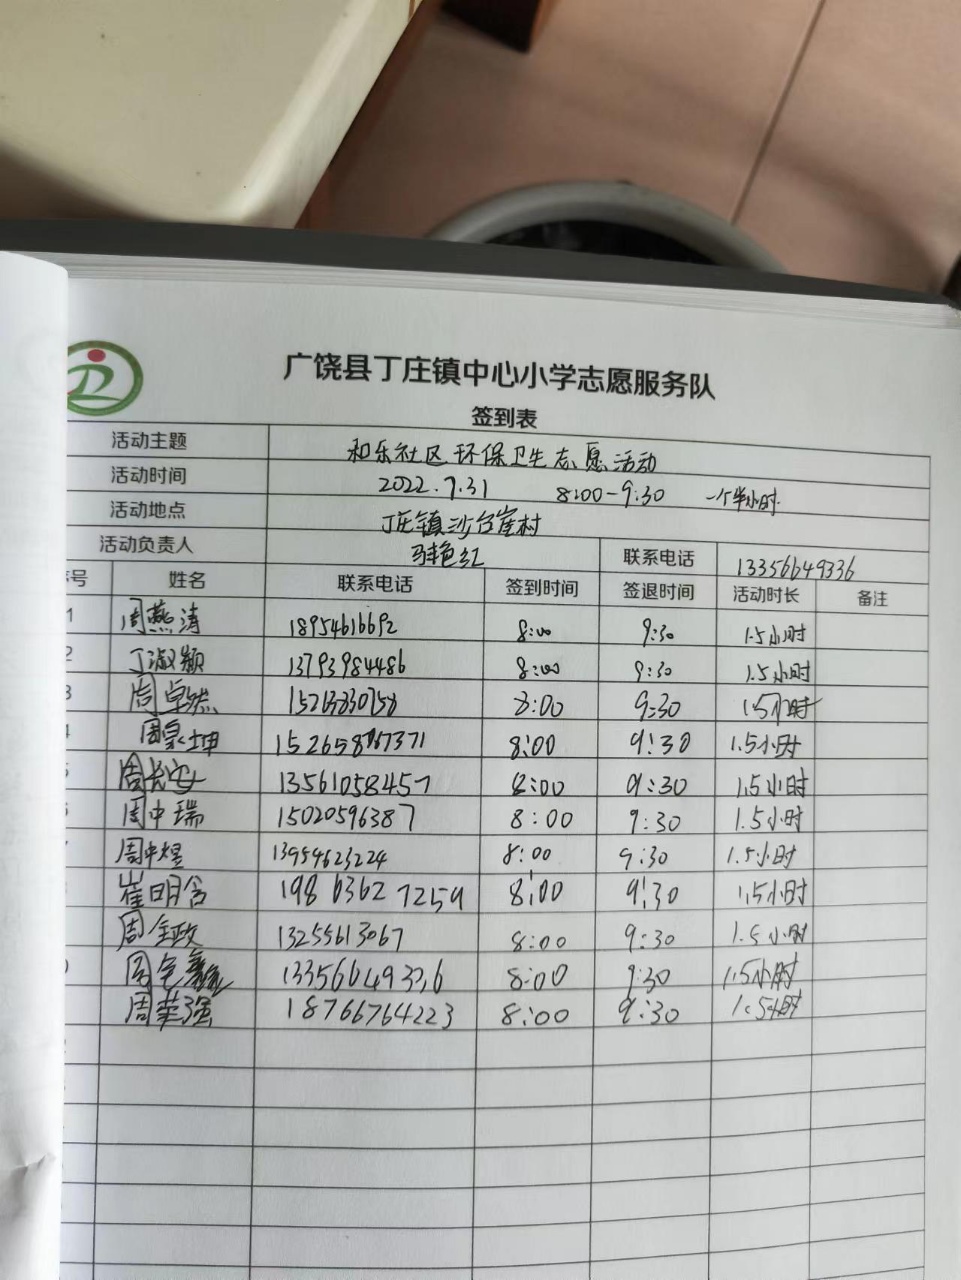 广饶县丁庄镇中心小学志愿服务队
签到表
活动主题 和乐社区环保卫生志愿活动
活动时间 2022.7.31 8:00-9:30 一个半小时
活动地点 丁庄镇沙台崔村
活动负责人 马艳红 联系电话 13356649336
号 姓名 联系电话 签到时间 签退时间 活动时长 备注
1 周燕涛 18954616692 8:00 9:30 1.5小时
2 丁淑颖 13793984486 8:00 9:30 1.5小时
3 周卓然 8:00 9:30 1.5小时
周泉坤 8:00 9:30 1.5小时
周长安 13561058457 8:00 9:30 1.5小时
周中瑞 15020596387 8:00 9:30 1.5小时
周中煜 13954623224 8:00 9:30 1.5小时
崔明含 198 6362 7259 8:00 9:30 1.5小时
周全政 13255613067 8:00 9:30 1.5小时
周 13356649336 8:00 9:30 1.5小时
周華强 18766764223 8:00 9:30 1.5小时